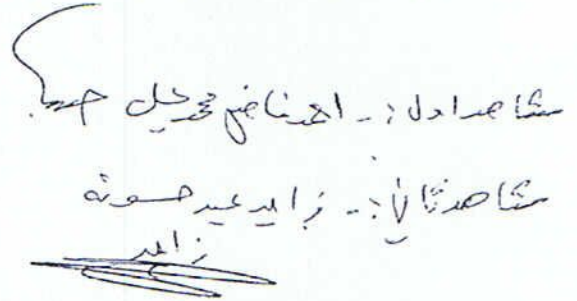 شاهد اول :- احمد ناضم محمد علي
شاهد ثاني :- زايد عيد حسونه
زايد